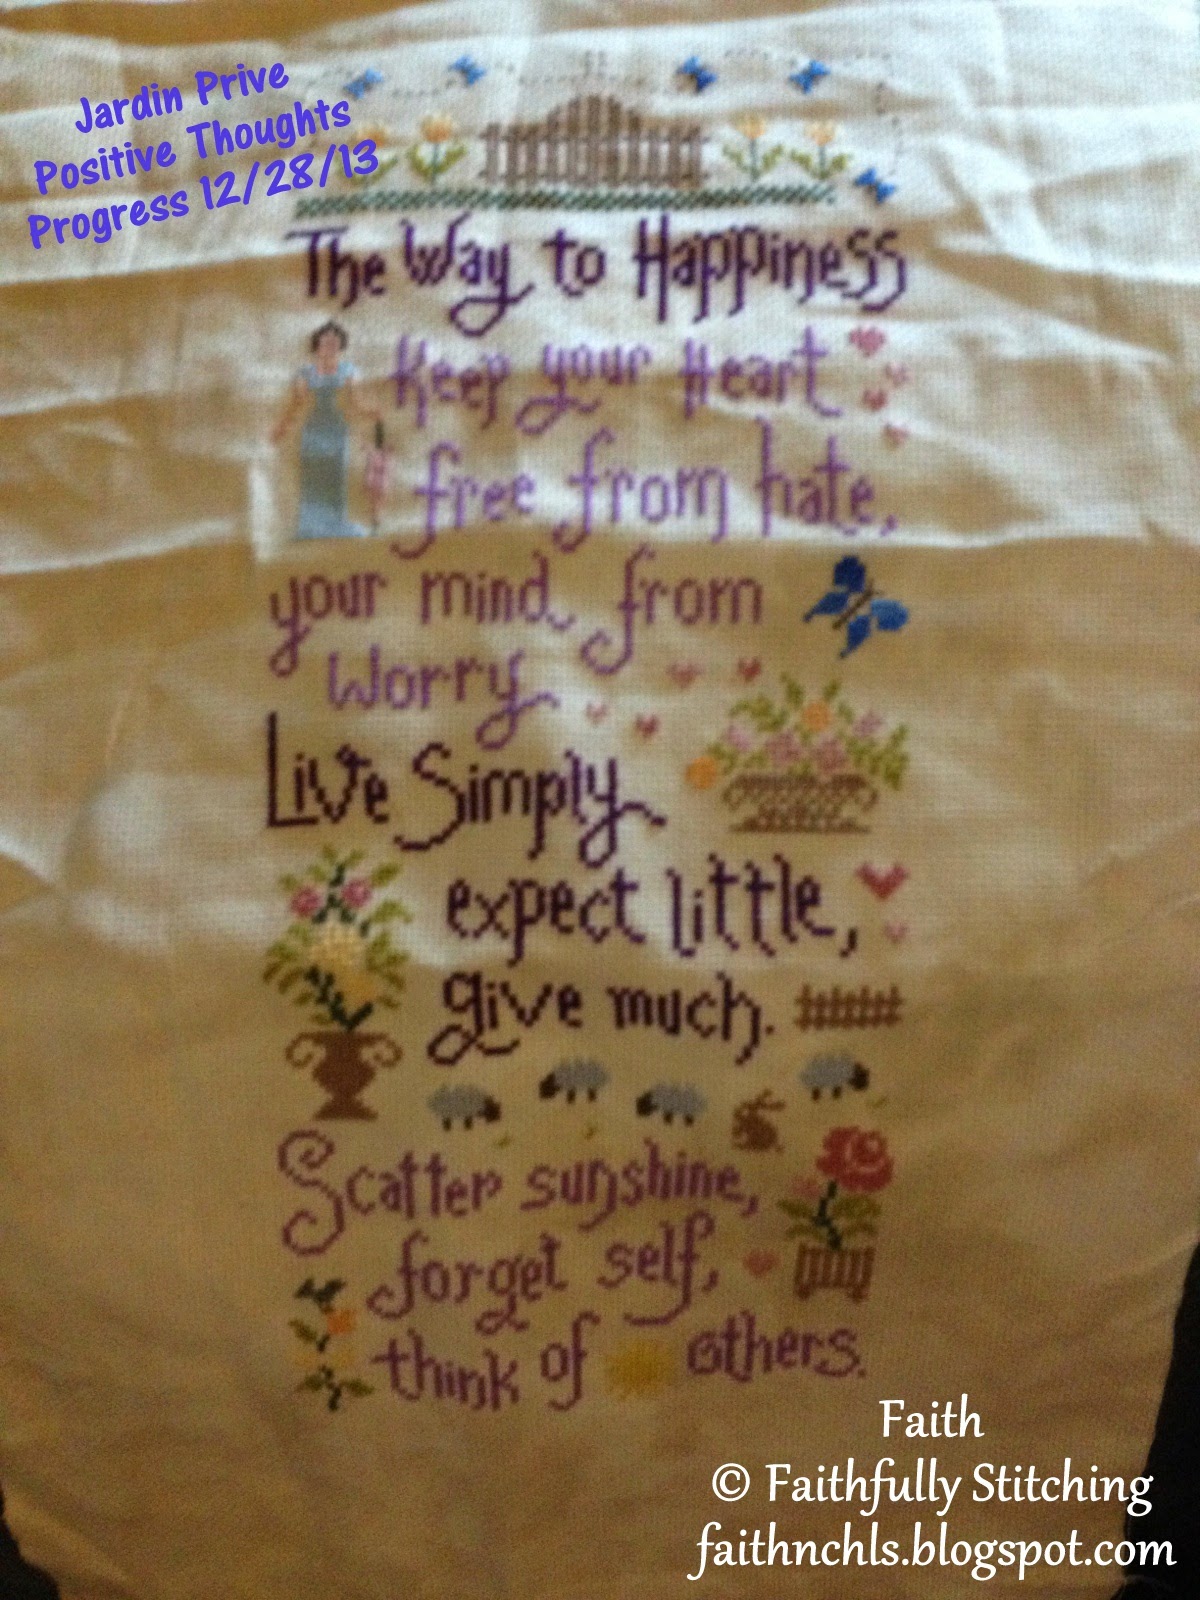 Jardin Prive
Positive Thoughts
Progress 12/28/13
The Way to Happiness
Keep your Heart
free from hate,
your mind from
Worry
Live Simply
expect little,
give much.
Scatter sunshine,
forget self,
think of others.
Faith
© Faithfully Stitching
faithnchls.blogspot.com